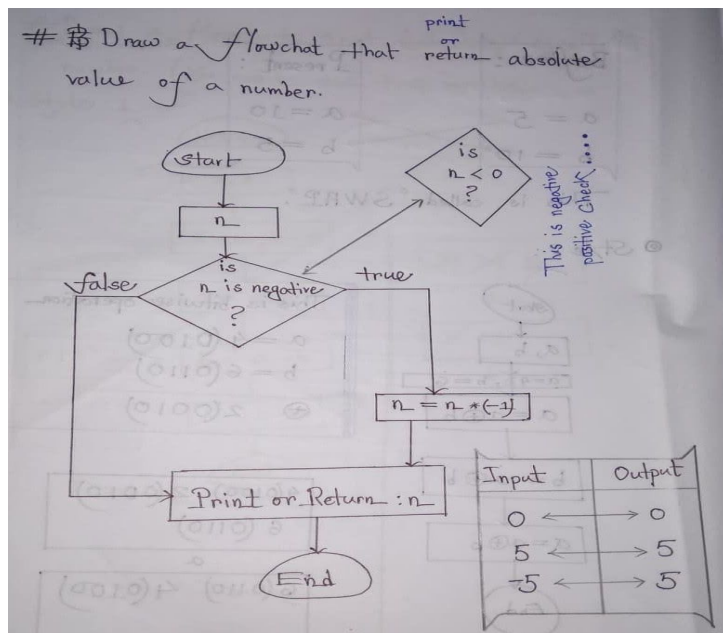 print
or
# Draw a flowchat that return absolute
value of a number.
start
n
is
n is negative
?
false
true
is
n < 0
?
This is negative
positive check....
n = n *(-1)
Print or Return : n
End
Input Output
0 0
5 5
-5 5